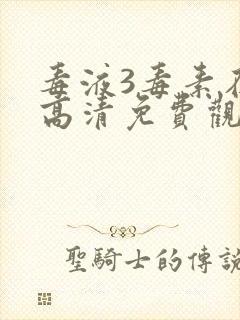 毒液3毒素
高清免費觀
聖騎士的傳說